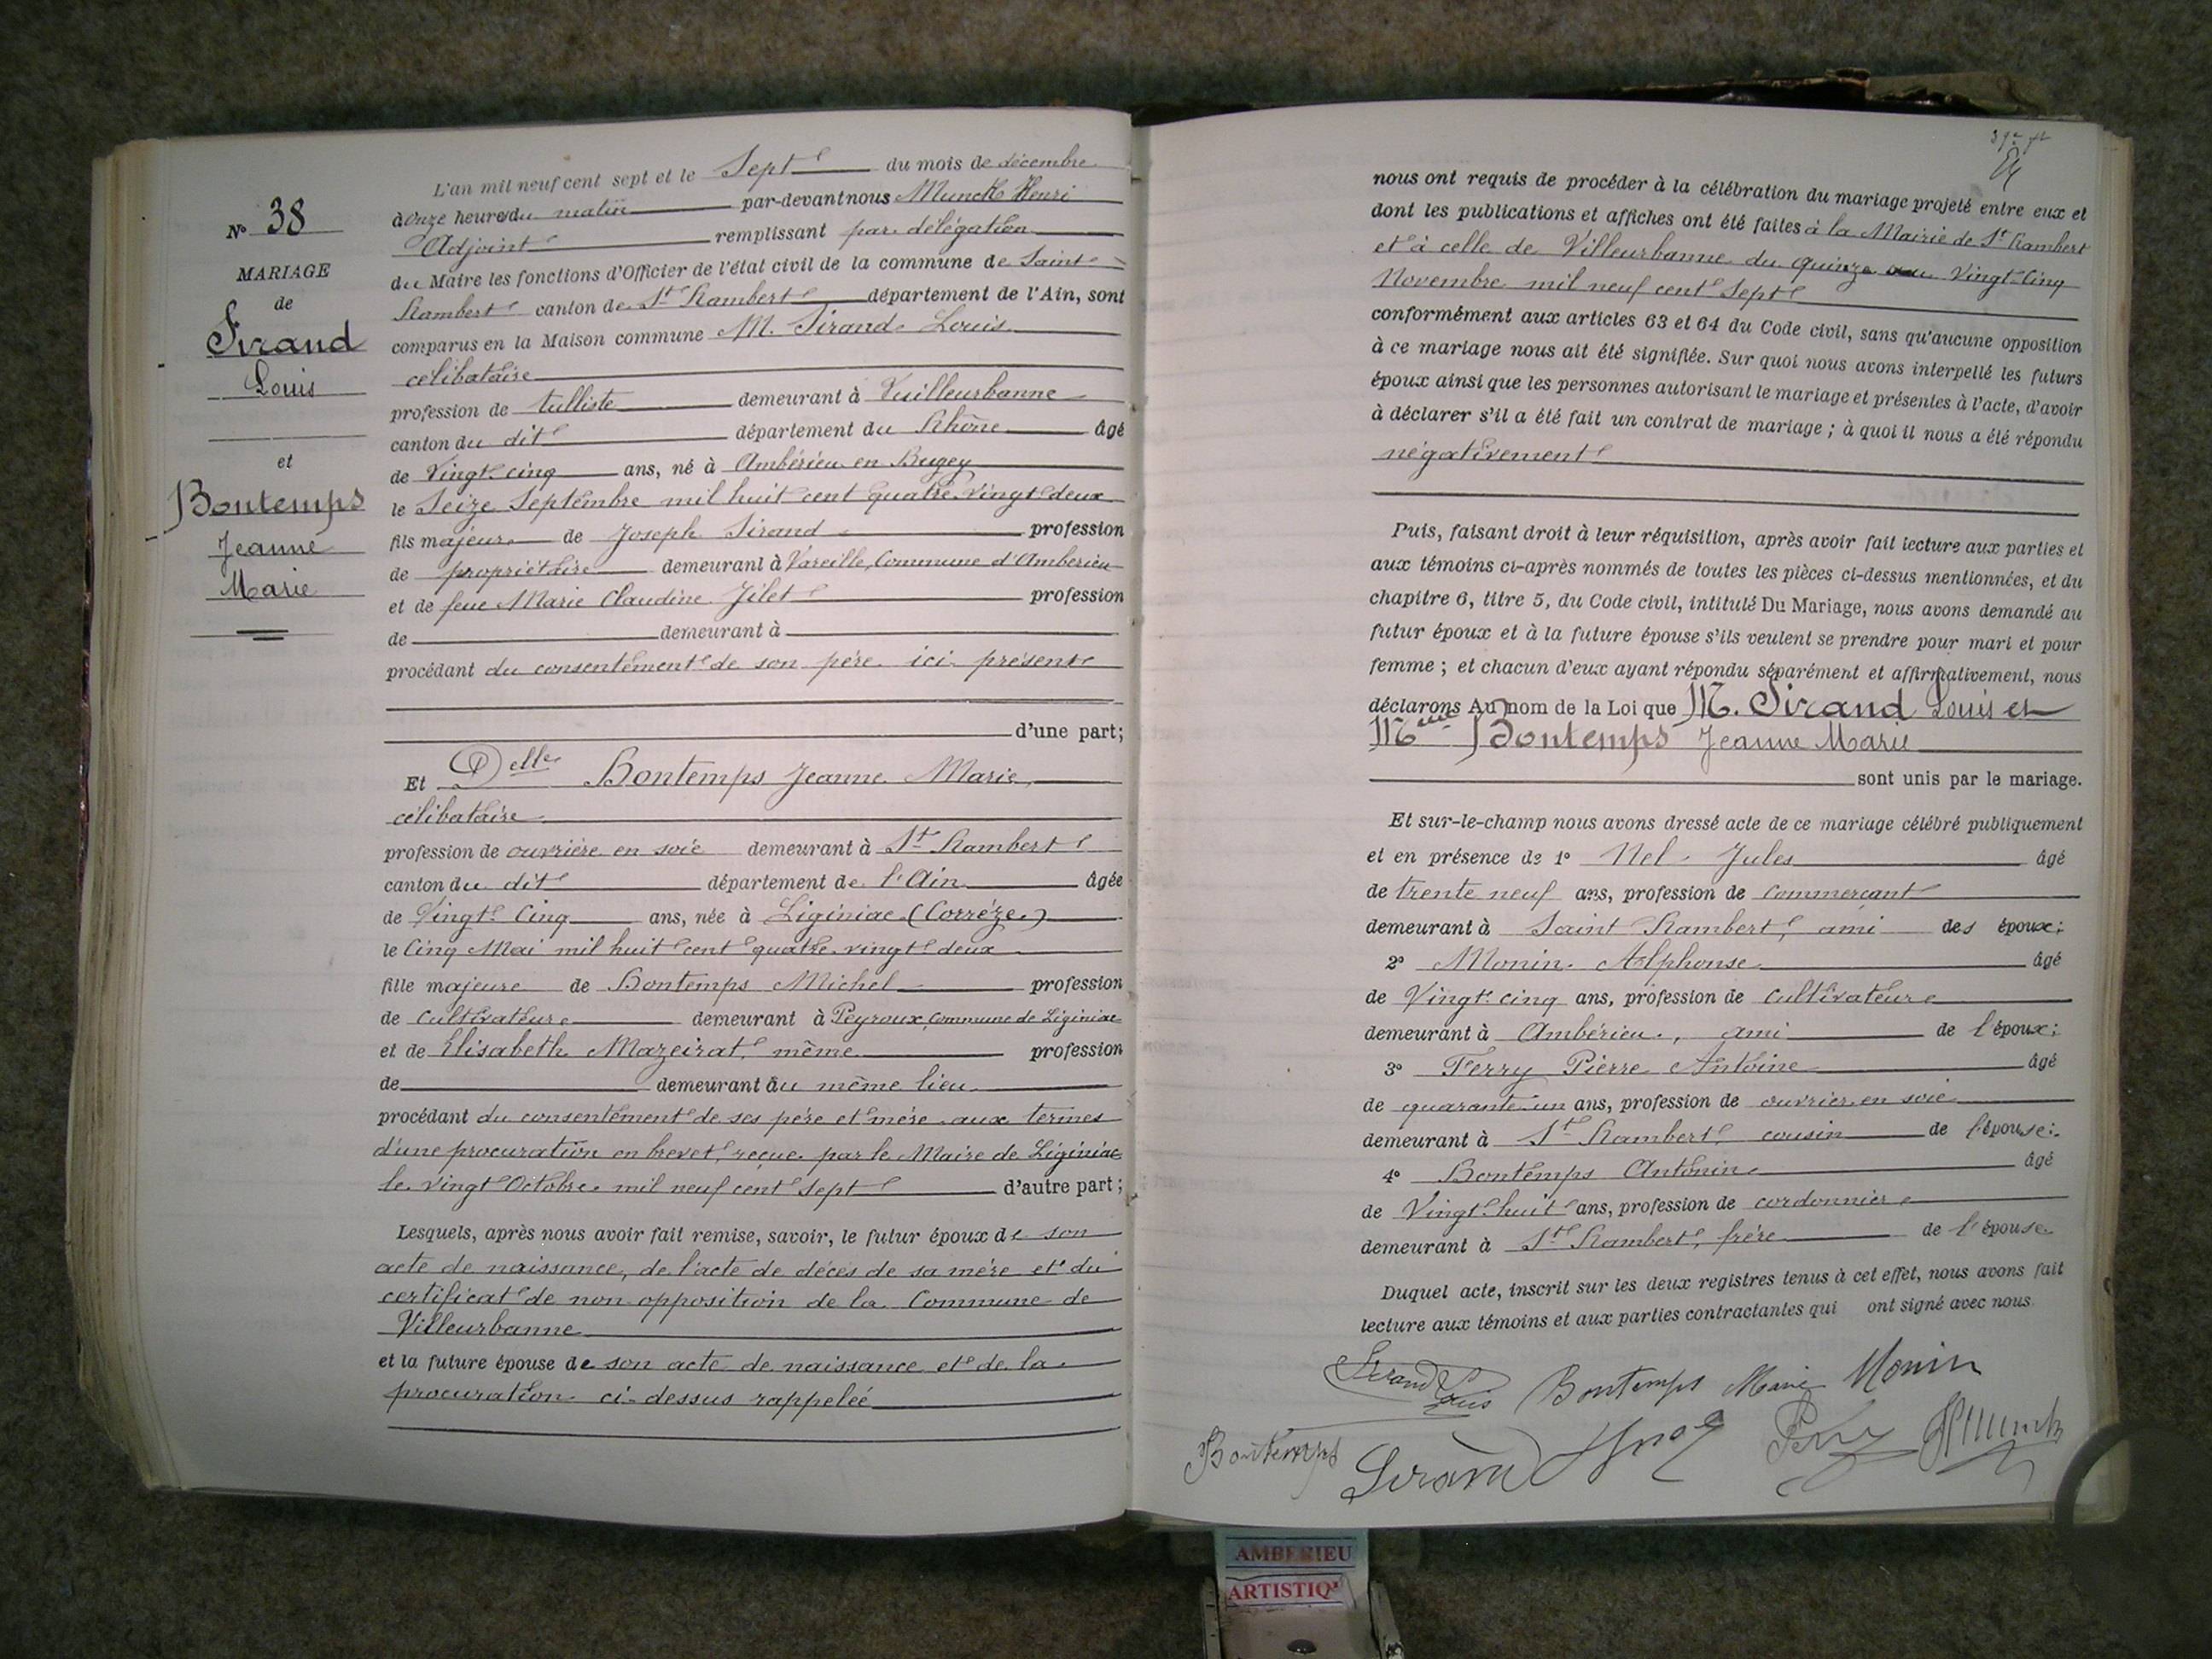 N° 38
MARIAGE
de
Sirand
Louis
et
Bontemps
Jeanne
Marie
L'an mil neuf cent sept et le Sept du mois de décembre
à onze heures du matin par-devant nous Munck Henri
Adjoint remplissant par délégation
du Maire les fonctions d'Officier de l'état civil de la commune de Saint-
Rambert canton de St Rambert département de l'Ain, sont
comparus en la Maison commune M. Sirand Louis
célibataire
profession de tulliste demeurant à Vuilleurbanne
canton du dit département du Rhône âgé
de Vingt cinq ans, né à Ambérieu en Bugey
le Seize Septembre mil huit cent quatre-vingt deux
fils majeur de Joseph Sirand profession
de propriétaire demeurant à Vareille, Commune d'Ambérieu
et de feue Marie Claudine Jilet profession
de demeurant à
procédant du consentement de son père ici présent
d'une part;
Et Delle Bontemps Jeanne Marie
célibataire
profession de ouvrière en soie demeurant à St Rambert
canton du dit département de l'Ain âgée
de Vingt Cinq ans, née à Liginiac (Corrèze)
le Cinq Mai mil huit cent quatre-vingt deux
fille majeure de Bontemps Michel profession
de cultivateur demeurant à Peyroux, Commune de Liginiac
et de Elisabeth Mazeirat, même profession
de demeurant au même lieu
procédant du consentement de ses père et mère aux termes
d'une procuration en brevet, reçue par le Maire de Liginiac
le vingt Octobre mil neuf cent sept d'autre part;
Lesquels, après nous avoir fait remise, savoir, le futur époux de son
acte de naissance, de l'acte de décès de sa mère et du
certificat de non opposition de la Commune de
Villeurbanne
et la future épouse de son acte de naissance et de la
procuration ci-dessus rappelée
nous ont requis de procéder à la célébration du mariage projeté entre eux et
dont les publications et affiches ont été faites à la Mairie de St Rambert
et à celle de Villeurbanne du quinze au Vingt-Cinq
Novembre mil neuf cent Sept
conformément aux articles 63 et 64 du Code civil, sans qu'aucune opposition
à ce mariage nous ait été signifiée. Sur quoi nous avons interpellé les futurs
époux ainsi que les personnes autorisant le mariage et présentes à l'acte, d'avoir
à déclarer s'il a été fait un contrat de mariage; à quoi il nous a été répondu
négativement
Puis, faisant droit à leur réquisition, après avoir fait lecture aux parties et
aux témoins ci-après nommés de toutes les pièces ci-dessus mentionnées, et du
chapitre 6, titre 5, du Code civil, intitulé Du Mariage, nous avons demandé au
futur époux et à la future épouse s'ils veulent se prendre pour mari et pour
femme; et chacun d'eux ayant répondu séparément et affirmativement, nous
déclarons Au nom de la Loi que M. Sirand Louis et
Melle Bontemps Jeanne Marie
sont unis par le mariage.
Et sur-le-champ nous avons dressé acte de ce mariage célébré publiquement
et en présence de 1° Nel Jules âgé
de trente neuf ans, profession de commerçant
demeurant à Saint Rambert, ami des époux;
2° Monin Alphonse âgé
de Vingt-cinq ans, profession de cultivateur
demeurant à Ambérieu, ami de l'époux;
3° Ferry Pierre Antoine âgé
de quarante-un ans, profession de ouvrier en soie
demeurant à St Rambert, cousin de l'épouse;
4° Bontemps Antonin âgé
de Vingt-huit ans, profession de cordonnier
demeurant à St Rambert, frère de l'épouse
Duquel acte, inscrit sur les deux registres tenus à cet effet, nous avons fait
lecture aux témoins et aux parties contractantes qui ont signé avec nous
Sirand Louis Bontemps Marie Monin
Bontemps Sirand HMunck
AMBERIEU
ARTISTIQ